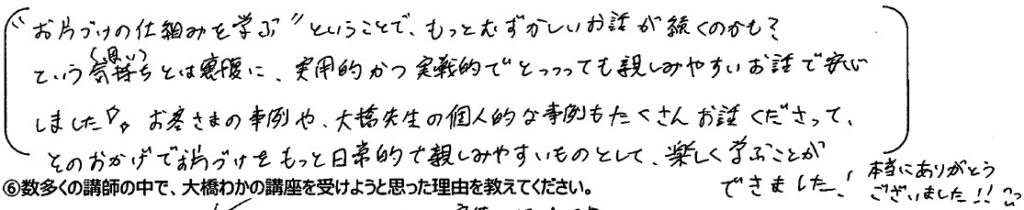 "お片づけの仕組みを学ぶ"ということで、もっとむずかしいお話が続くのかも?
という気持ち(思い)とは裏腹に、実用的かつ実戦的でとっっっても親しみやすいお話で安心
しました♡。お客さまの事例や、大橋先生の個人的な事例もたくさんお話くださって、
そのおかげでお片づけをもっと日常的で親しみやすいものとして、楽しく学ぶことが
できました! 本当にありがとう
ございました!!
⑥数多くの講師の中で、大橋わかの講座を受けようと思った理由を教えてください。